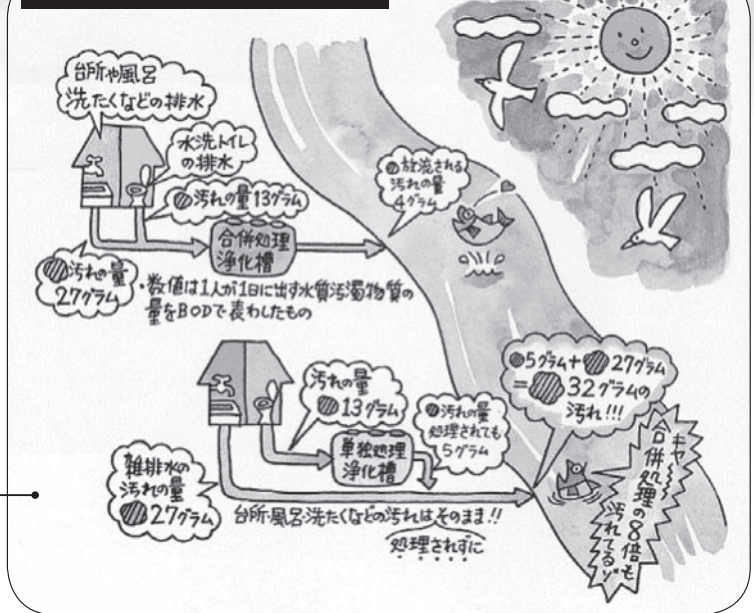 台所や風呂
洗たくなどの排水
水洗トイレ
の排水
汚れの量13グラム
汚れの量
27グラム
合併処理
浄化槽
放流される
汚れの量
4グラム
・数値は1人が1日に出す水質汚濁物質の
量をBODで表わしたもの
汚れの量
13グラム
単独処理
浄化槽
汚れの量
処理されても
5グラム
雑排水の
汚れの量
27グラム
台所・風呂・洗たくなどの汚れはそのまま!!
処理されずに
5グラム+27グラム
=32グラムの
汚れ!!!
キャー
合併処理の8倍も
汚れてるゾ